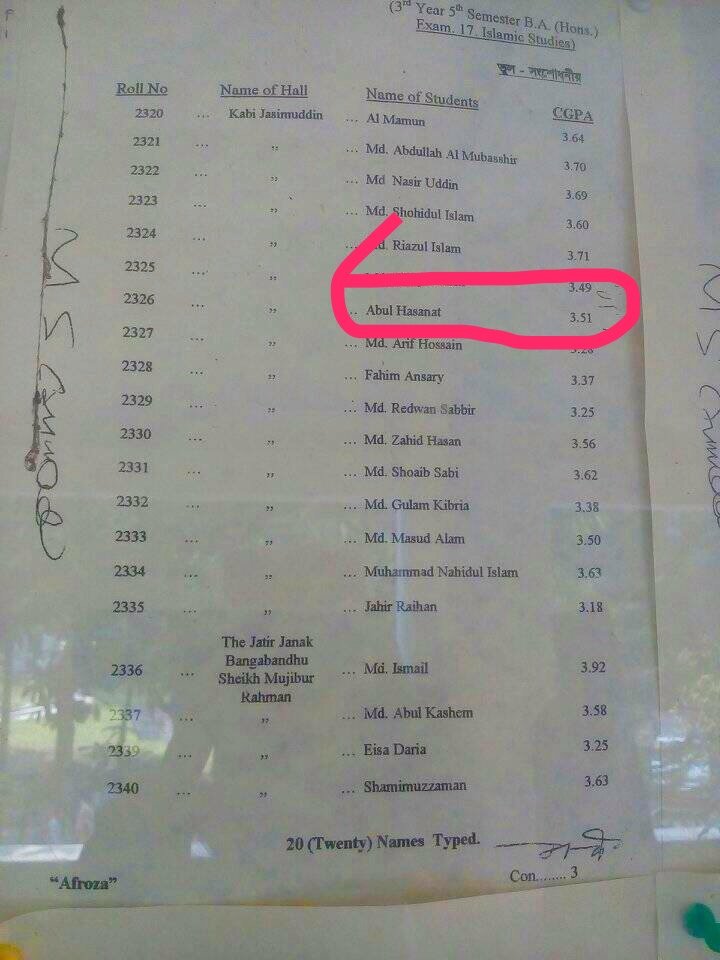 (3rd Year 5th Semester B.A. (Hons.)
Exam. 17. Islamic Studies)
ভুল - সংশোধনীয়
Roll No Name of Hall Name of Students CGPA
2320 ... Kabi Jasimuddin ... Al Mamun 3.64
2321 ... ,, ... Md. Abdullah Al Mubasshir 3.70
2322 ... ,, ... Md Nasir Uddin 3.69
2323 ... ,, ... Md. Shohidul Islam 3.60
2324 ... ,, ... Md. Riazul Islam 3.71
2325 ... ,, 3.49
2326 ... ,, ... Abul Hasanat 3.51
2327 ... ,, ... Md. Arif Hossain 3.28
2328 ... ,, ... Fahim Ansary 3.37
2329 ... ,, ... Md. Redwan Sabbir 3.25
2330 ... ,, ... Md. Zahid Hasan 3.56
2331 ... ,, ... Md. Shoaib Sabi 3.62
2332 ... ,, ... Md. Gulam Kibria 3.38
2333 ... ,, ... Md. Masud Alam 3.50
2334 ... ,, ... Muhammad Nahidul Islam 3.63
2335 ... ,, ... Jahir Raihan 3.18
The Jatir Janak
Bangabandhu
2336 ... Sheikh Mujibur ... Md. Ismail 3.92
Rahman
2337 ... ,, ... Md. Abul Kashem 3.58
2339 ... ,, ... Eisa Daria 3.25
2340 ... ,, ... Shamimuzzaman 3.63
20 (Twenty) Names Typed.
"Afroza"
Con........ 3